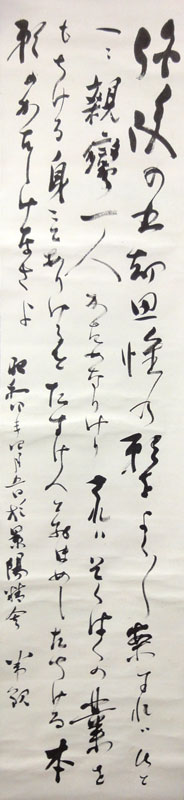 弥陀の五劫思惟の願をよく〳〵案ずれバひと
へニ親鸞一人がためなりけりされバそくばくの業を
もちける身ニてありけるをたすけんとおぼしめしたちける本
願のかたじけなさよ 昭和 年四月五日於景陽精舎